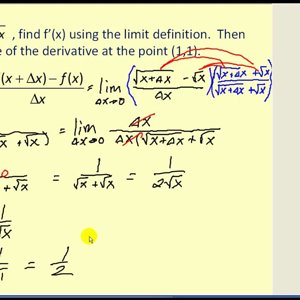 x, find f'(x) using the limit definition. Then
e of the derivative at the point (1,1).
(x + Δx) − f(x) / Δx = lim Δx→0 (√x+Δx − √x / Δx)(√x+Δx + √x / √x+Δx + √x)
√x) = lim Δx→0 Δx / Δx(√x+Δx + √x
+ √x = 1 / √x + √x = 1 / 2√x
1 / √x
1 = 1 / 2